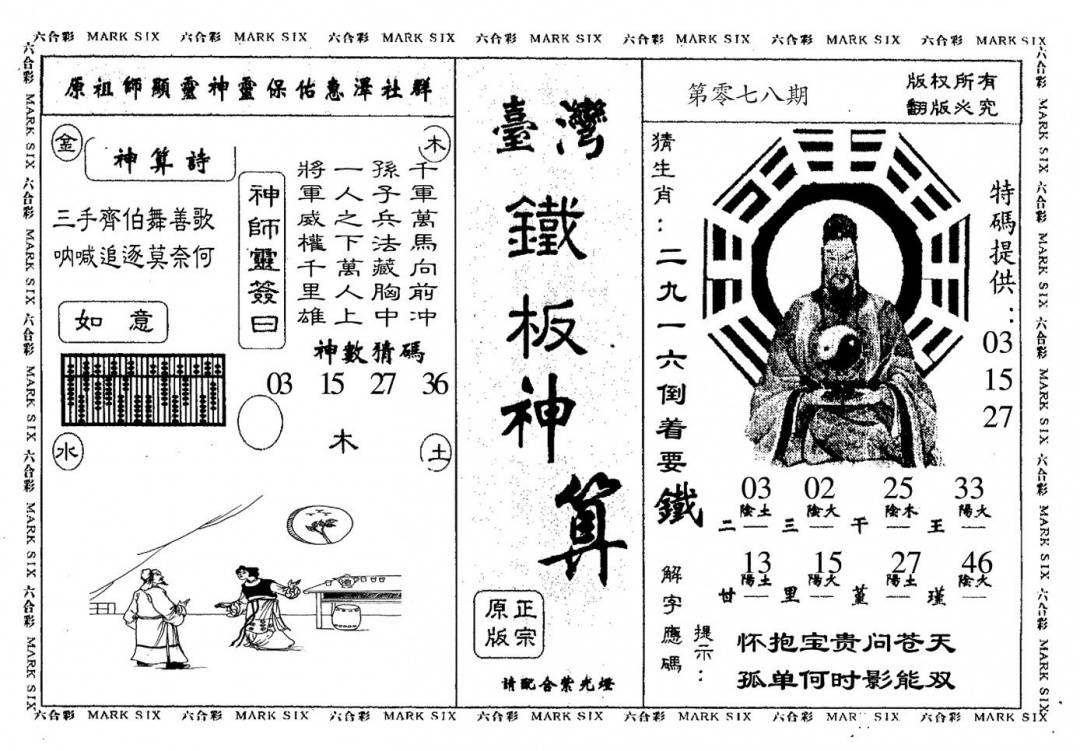 六合彩 MARK SIX 六合彩 MARK SIX 六合彩 MARK SIX 六合彩 MARK SIX 六合彩 MARK SIX 六合彩 MARK SIX 六合彩 MARK SIX
六合彩 MARK SIX 六合彩 MARK SIX 六合彩 MARK SIX 六合彩 MARK SIX 六合彩 MARK SIX
原祖師顯靈神靈保佑惠澤社群
金
木
神算詩
三手齊伯舞善歌
吶喊追逐莫奈何
如意
神師靈簽曰
千軍萬馬向前冲
孫子兵法藏胸中
一人之下萬人上
將軍威權千里雄
神數猜碼
03 15 27 36
木
水
土
臺灣
鐵
板
神
算
正宗
原版
請配合紫光燈
第零七八期
版权所有
翻版必究
猜生肖：二九一六倒着要鐵
特碼提供：
03
15
27
03 02 25 33
陰土 陰火 陰木 陽火
二 — 三 — 干 — 王 —
13 15 27 46
陽土 陽火 陽土 陰火
甘 — 里 — 堇 — 瑾 —
解字應碼
提示：
怀抱宝贵问苍天
孤单何时影能双
六合彩 MARK SIX 六合彩 MARK SIX 六合彩 MARK SIX 六合彩 MARK SIX 六合彩 MARK SIX
六合彩 MARK SIX 六合彩 MARK SIX 六合彩 MARK SIX 六合彩 MARK SIX 六合彩 MARK SIX 六合彩 MARK SIX 六合彩 MARK SIX